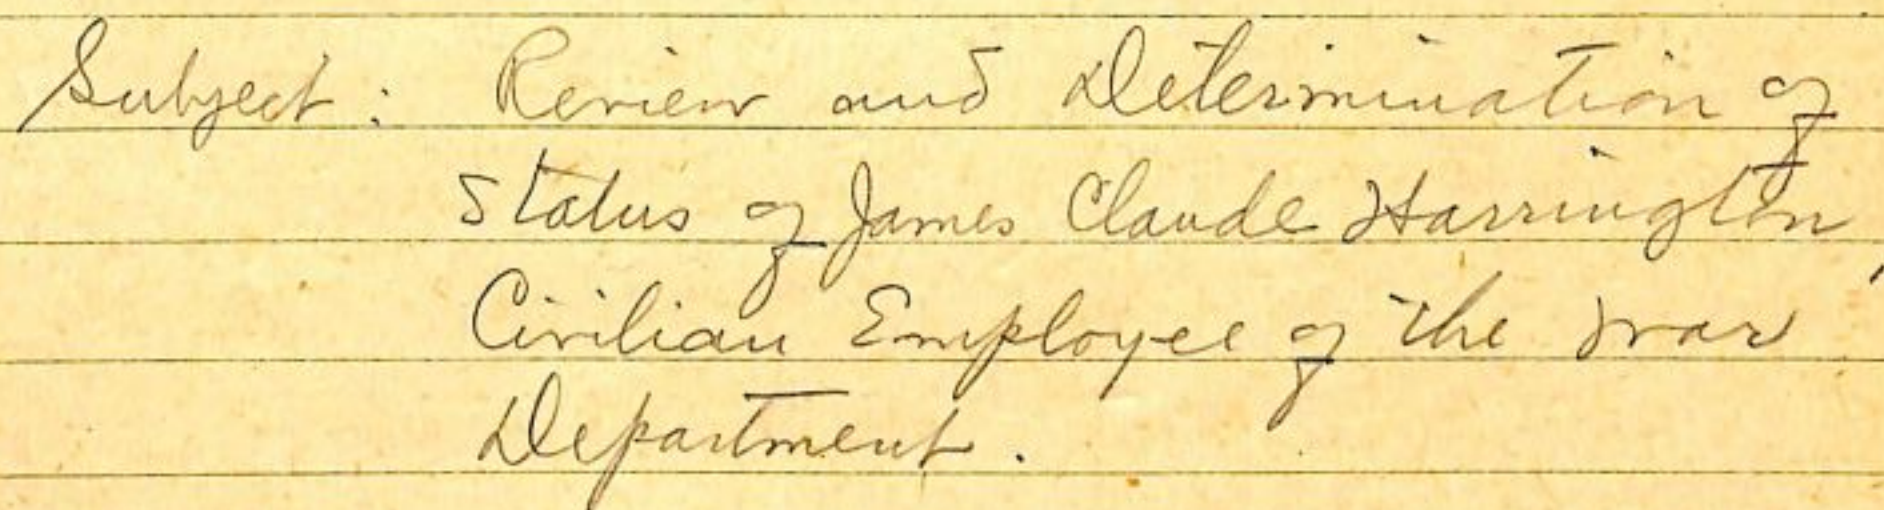 Subject: Review and Determination of
Status of James Claude Harrington,
Civilian Employee of the War
Department.